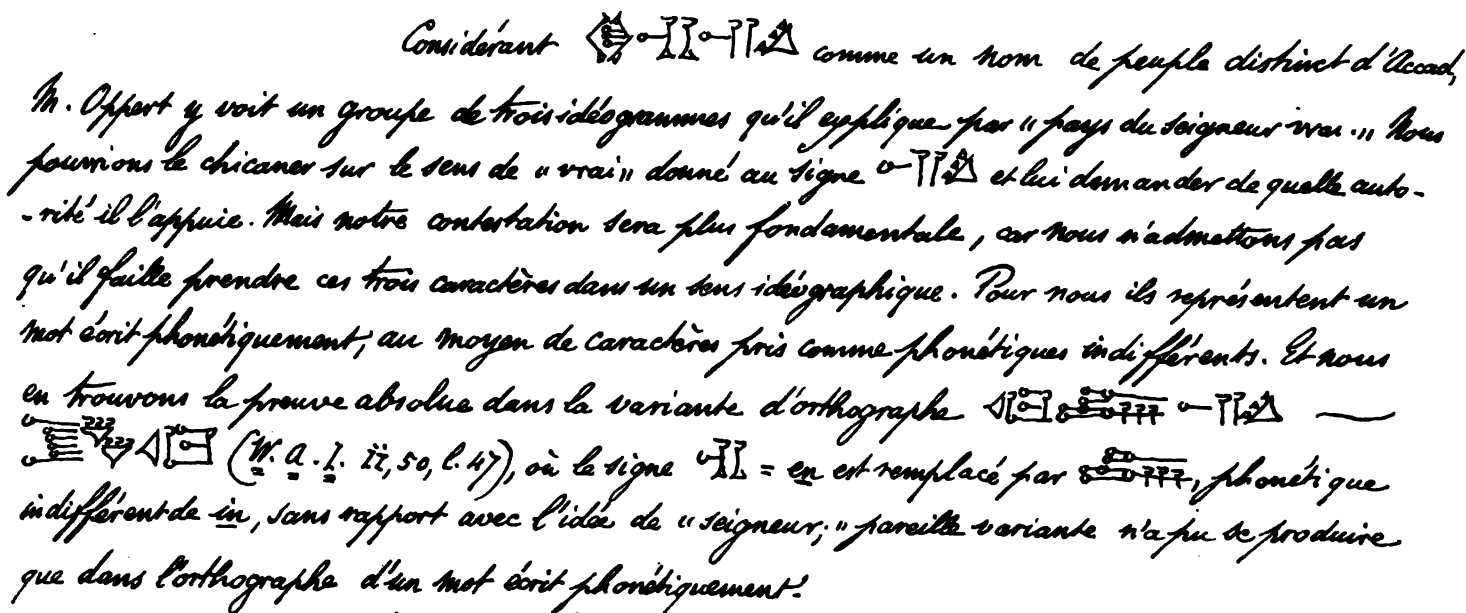 Considérant 𒆠𒂗𒄀 comme un nom de peuple distinct d'Accad,
M. Oppert y voit un groupe de trois idéogrammes qu'il explique par "pays du seigneur vrai." Nous
pourrions le chicaner sur le sens de "vrai" donné au signe 𒄀 et lui demander de quelle auto-
-rité il l'appuie. Mais notre contestation sera plus fondamentale, car nous n'admettons pas
qu'il faille prendre ces trois caractères dans un sens idéographique. Pour nous ils représentent un
mot écrit phonétiquement, au moyen de caractères pris comme phonétiques indifférents. Et nous
en trouvons la preuve absolue dans la variante d'orthographe
(W. A. I. II, 50, l. 47), où le signe 𒂗 = en est remplacé par 𒅔, phonétique
indifférent de in, sans rapport avec l'idée de "seigneur;" pareille variante n'a pu se produire
que dans l'orthographe d'un mot écrit phonétiquement.